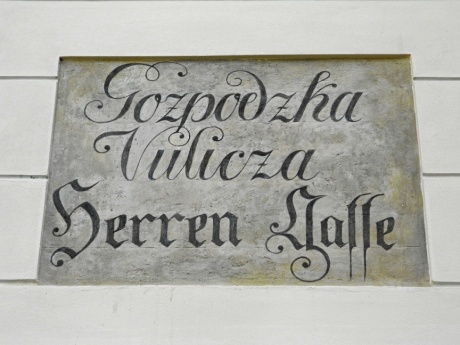 Gozpodzka
Vulicza
Herren Gasse